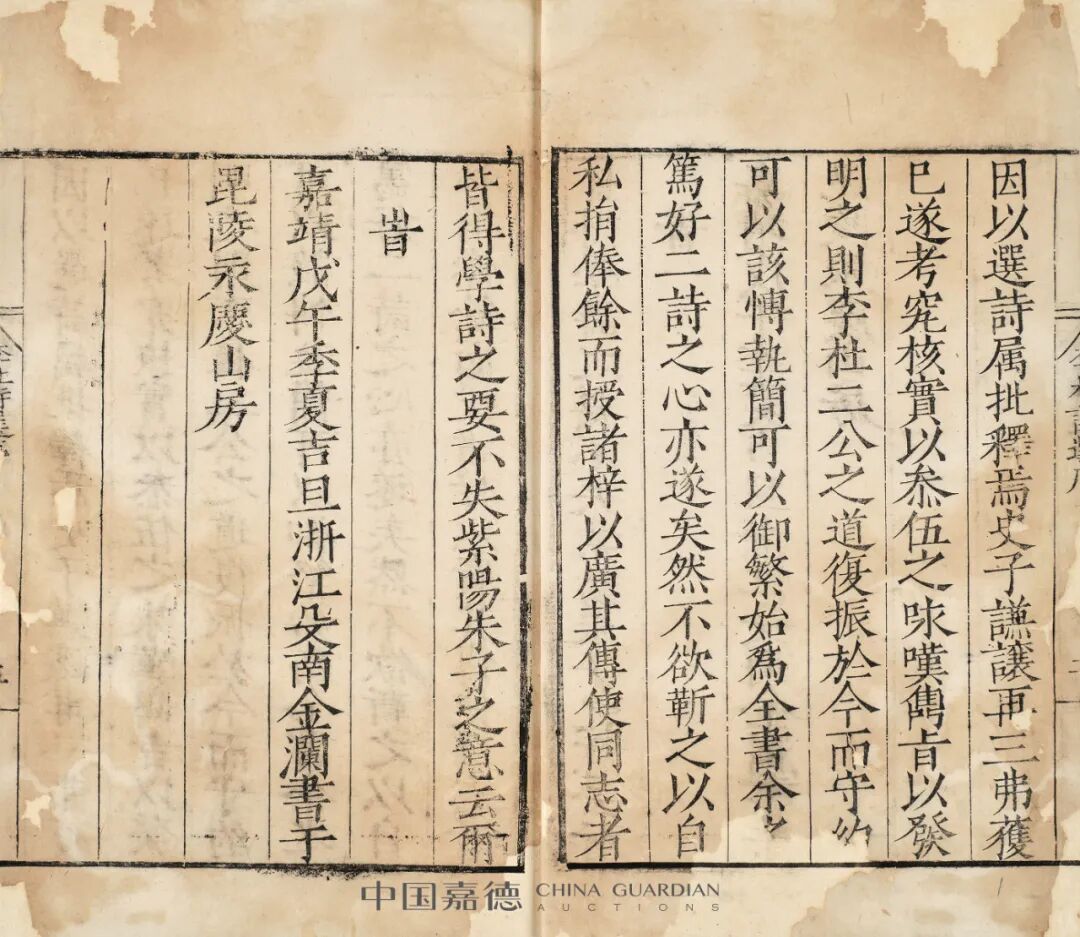 因以選詩属批釋焉史子謙讓再三弗獲
已遂考究核實以叅伍之咏嘆雋旨以發
明之則李杜二公之道復振於今而守約
可以該慱執簡可以御繁始爲全書余之
篤好二詩之心亦遂矣然不欲靳之以自
私捐俸餘而授諸梓以廣其傳使同志者
皆得學詩之要不失紫陽朱子之意云爾
旹
嘉靖戊午季夏吉旦浙江安南金瀾書于
毘陵永慶山房
中国嘉德 CHINA GUARDIAN
AUCTIONS